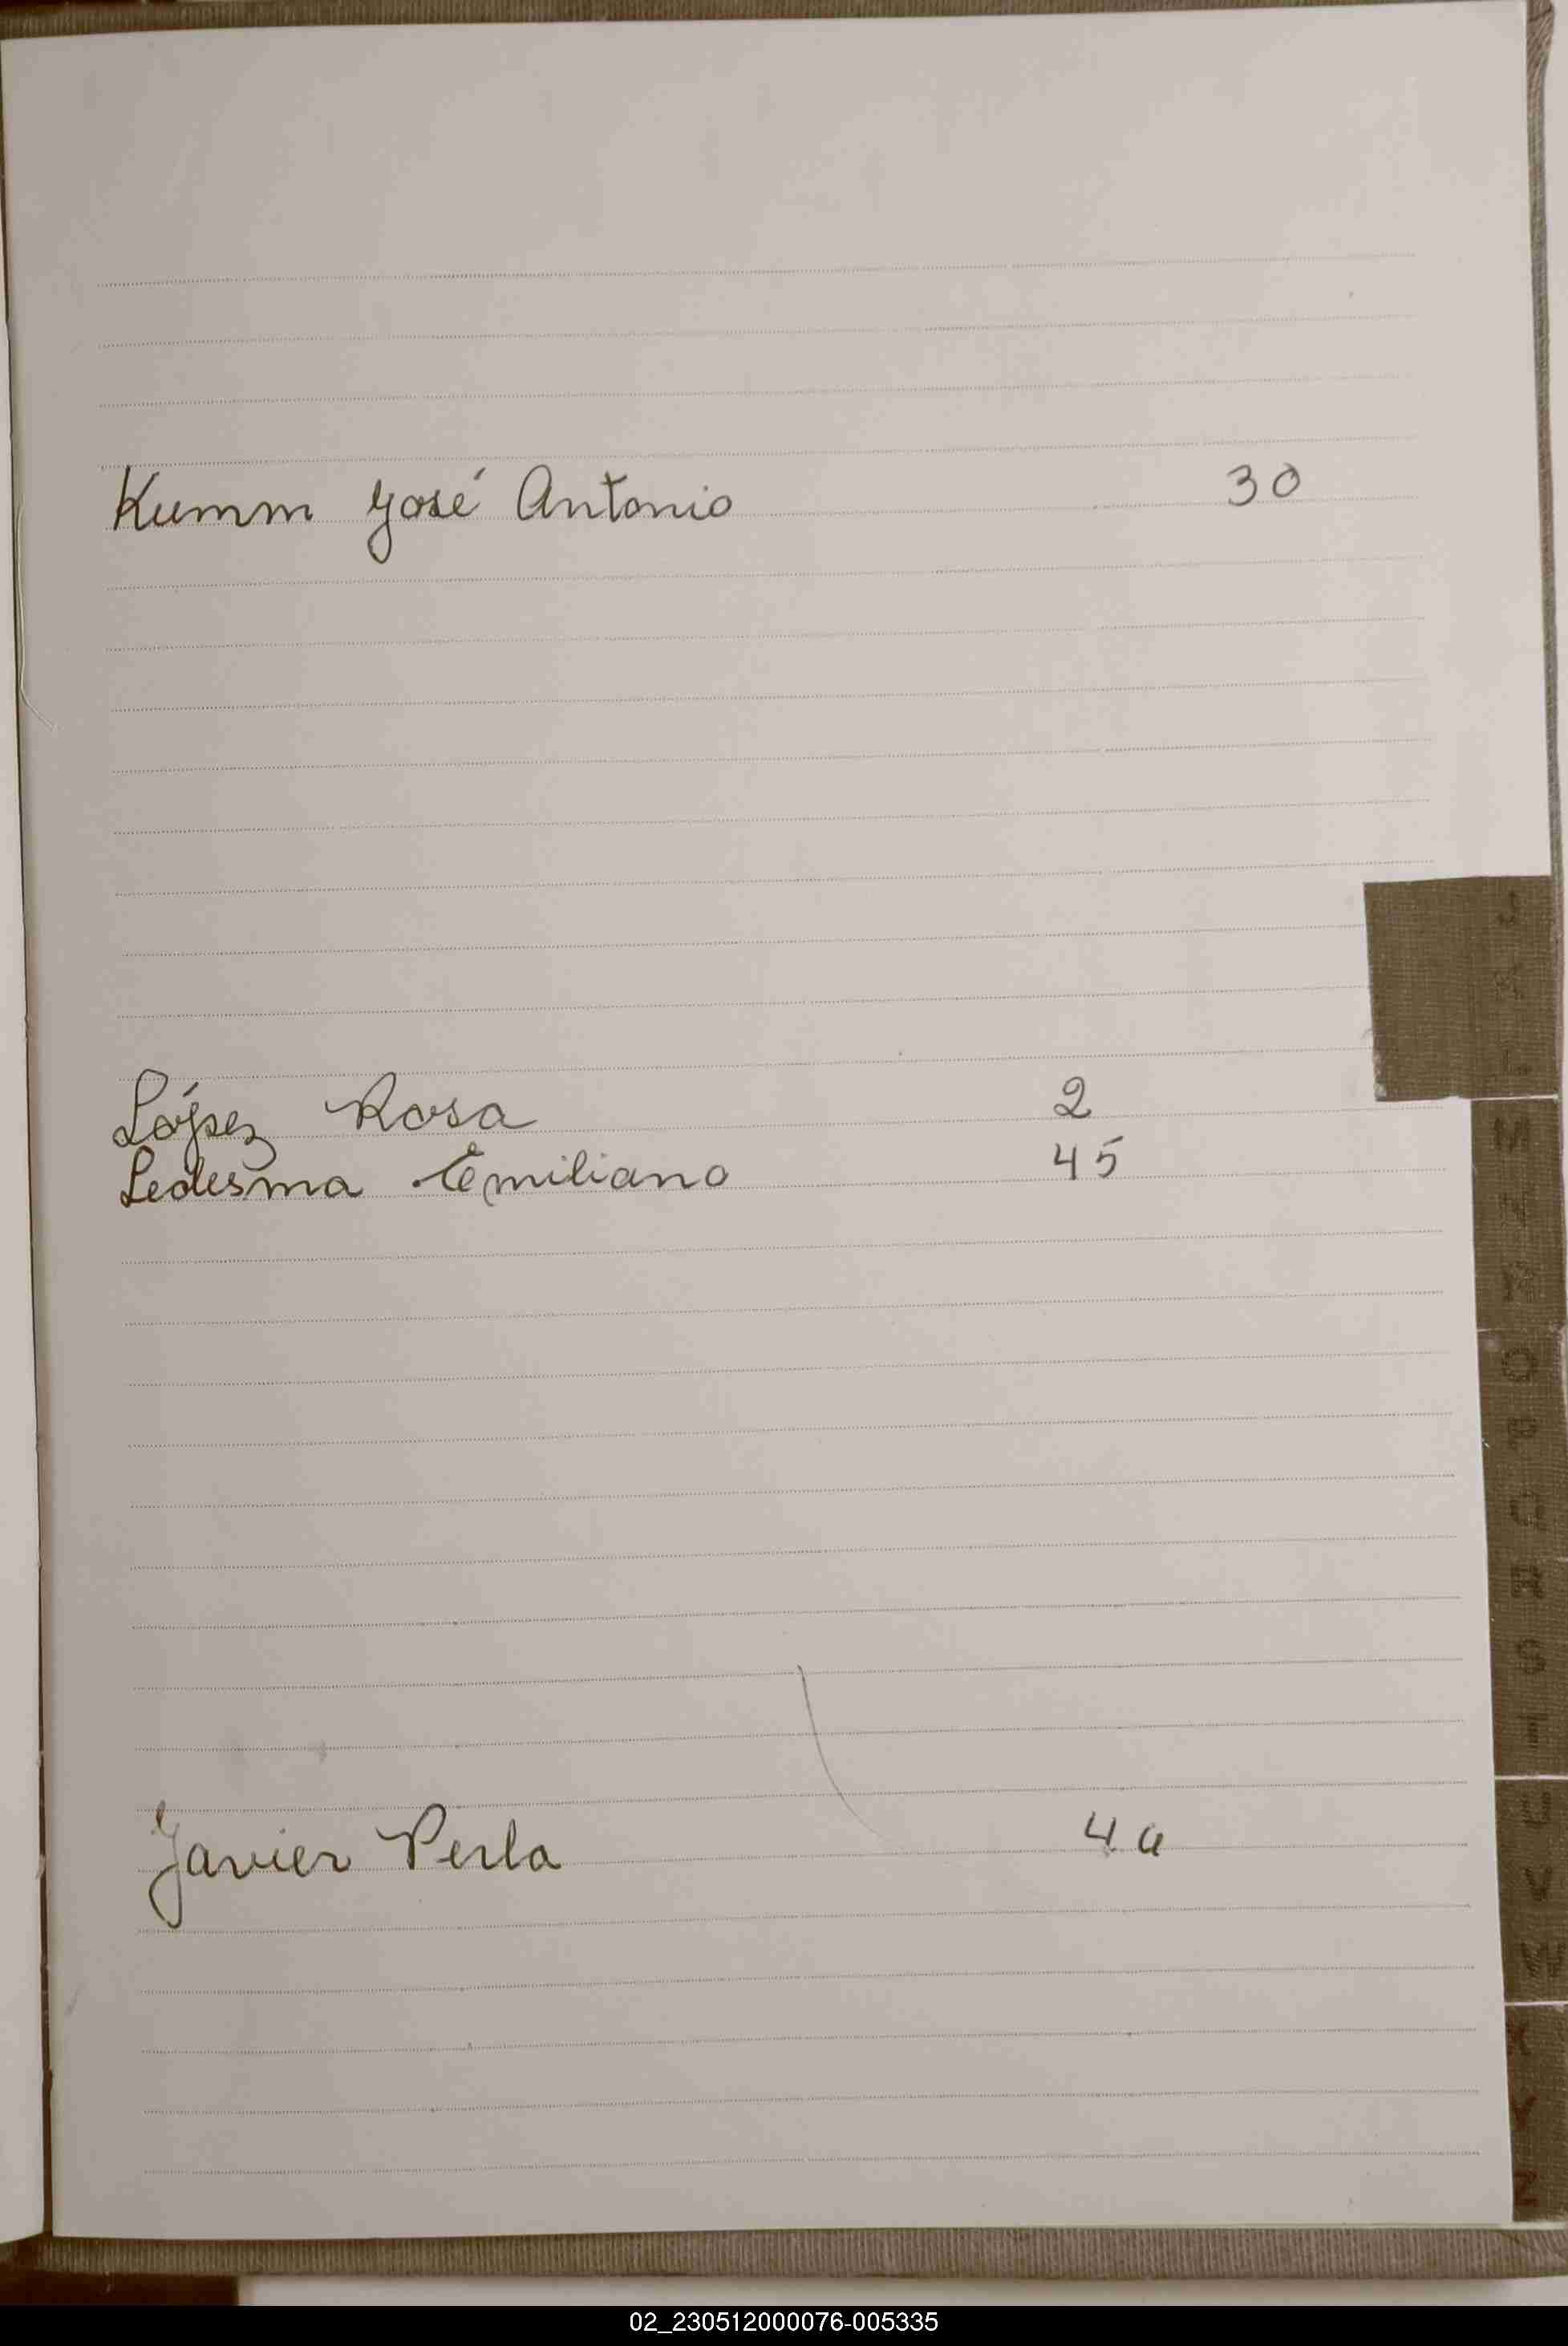 Kumm José Antonio 30
López Rosa 2
Ledesma Emiliano 45
Javier Perla 4
M
N
Ñ
O
P
Q
R
S
T
U
V
W
X
Y
Z
02_230512000076-005335